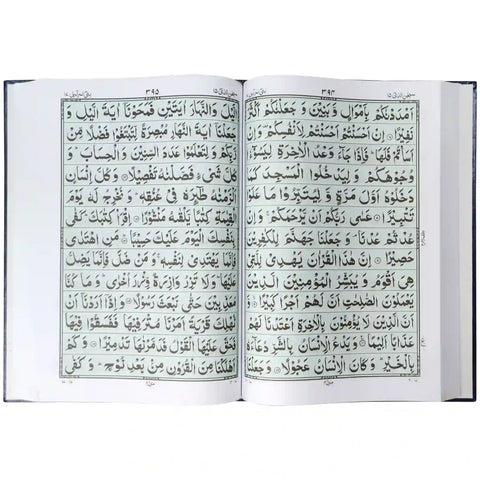 ۳۹۴
اَمْدَدْنٰكُمْ بِاَمْوَالٍ وَّ بَنِیْنَ وَ جَعَلْنٰكُمْ اَكْثَرَ
نَفِیْرًا ۝ اِنْ اَحْسَنْتُمْ اَحْسَنْتُمْ لِاَنْفُسِكُمْ وَ اِنْ
اَسَاْتُمْ فَلَهَا ؕ فَاِذَا جَآءَ وَعْدُ الْاٰخِرَةِ لِیَسُوْٓءٗا
وُجُوْهَكُمْ وَ لِیَدْخُلُوا الْمَسْجِدَ كَمَا
دَخَلُوْهُ اَوَّلَ مَرَّةٍ وَّ لِیُتَبِّرُوْا مَا عَلَوْا
تَتْبِیْرًا ۝ عَسٰى رَبُّكُمْ اَنْ یَّرْحَمَكُمْ ۚ وَ اِنْ
عُدْتُّمْ عُدْنَا ۘ وَ جَعَلْنَا جَهَنَّمَ لِلْكٰفِرِیْنَ
حَصِیْرًا ۝ اِنَّ هٰذَا الْقُرْاٰنَ یَهْدِیْ لِلَّتِیْ
هِیَ اَقْوَمُ وَ یُبَشِّرُ الْمُؤْمِنِیْنَ الَّذِیْنَ
یَعْمَلُوْنَ الصّٰلِحٰتِ اَنَّ لَهُمْ اَجْرًا كَبِیْرًا ۝ وَّ
اَنَّ الَّذِیْنَ لَا یُؤْمِنُوْنَ بِالْاٰخِرَةِ اَعْتَدْنَا لَهُمْ
عَذَابًا اَلِیْمًا ۝ وَ یَدْعُ الْاِنْسَانُ بِالشَّرِّ دُعَآءَهٗ
بِالْخَیْرِ ؕ وَ كَانَ الْاِنْسَانُ عَجُوْلًا ۝ وَ جَعَلْنَا
۳۹۵
الَّیْلَ وَ النَّهَارَ اٰیَتَیْنِ فَمَحَوْنَاۤ اٰیَةَ الَّیْلِ وَ
جَعَلْنَاۤ اٰیَةَ النَّهَارِ مُبْصِرَةً لِّتَبْتَغُوْا فَضْلًا مِّنْ
رَّبِّكُمْ وَ لِتَعْلَمُوْا عَدَدَ السِّنِیْنَ وَ الْحِسَابَ ؕ وَ
كُلَّ شَیْءٍ فَصَّلْنٰهُ تَفْصِیْلًا ۝ وَ كُلَّ اِنْسَانٍ
اَلْزَمْنٰهُ طٰٓىِٕرَهٗ فِیْ عُنُقِهٖ ؕ وَ نُخْرِجُ لَهٗ یَوْمَ
الْقِیٰمَةِ كِتٰبًا یَّلْقٰىهُ مَنْشُوْرًا ۝ اِقْرَاْ كِتٰبَكَ ؕ كَفٰى
بِنَفْسِكَ الْیَوْمَ عَلَیْكَ حَسِیْبًا ۝ مَنِ اهْتَدٰى
فَاِنَّمَا یَهْتَدِیْ لِنَفْسِهٖ ۚ وَ مَنْ ضَلَّ فَاِنَّمَا یَضِلُّ
عَلَیْهَا ؕ وَ لَا تَزِرُ وَازِرَةٌ وِّزْرَ اُخْرٰى ؕ وَ مَا كُنَّا
مُعَذِّبِیْنَ حَتّٰى نَبْعَثَ رَسُوْلًا ۝ وَ اِذَاۤ اَرَدْنَاۤ اَنْ
نُّهْلِكَ قَرْیَةً اَمَرْنَا مُتْرَفِیْهَا فَفَسَقُوْا فِیْهَا
فَحَقَّ عَلَیْهَا الْقَوْلُ فَدَمَّرْنٰهَا تَدْمِیْرًا ۝ وَ كَمْ
اَهْلَكْنَا مِنَ الْقُرُوْنِ مِنْۢ بَعْدِ نُوْحٍ ؕ وَ كَفٰى